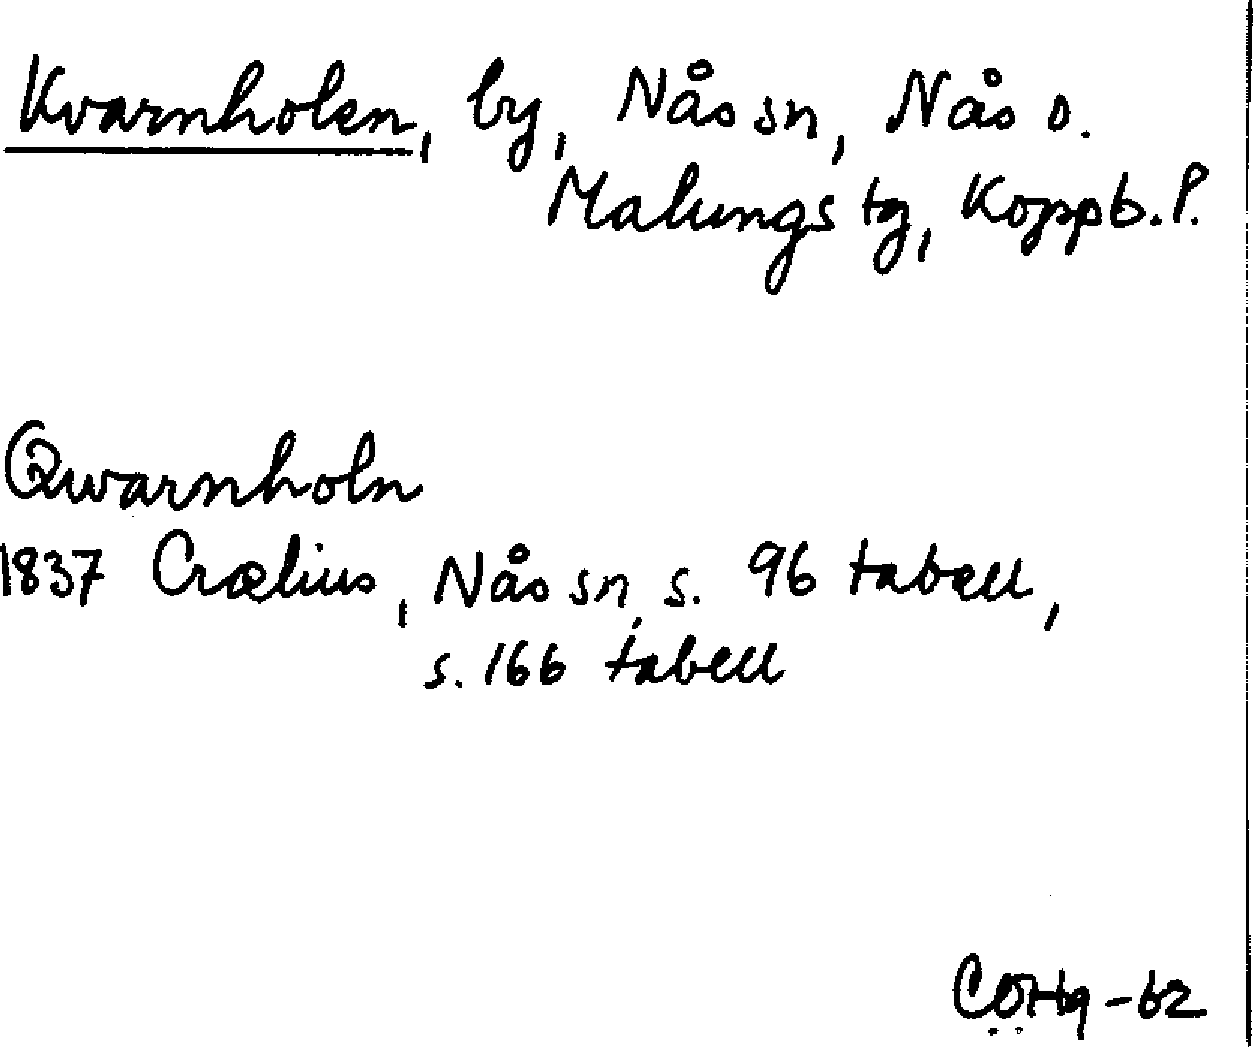 Kvarnholen, by, Nås sn, Nås o.
Malungs tg, Koppb. l.
Qwarnholn
1837 Crælius, Nås sn, s. 96 tabell,
s. 166 tabell